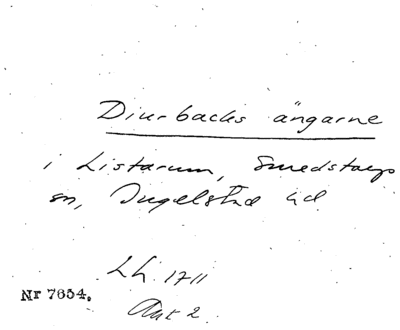 Diurbacks ängarne
i Listarum, Smedstorps
sn, Ingelstad hd
Lh. 1711
Akt 2.
Nr 7654.